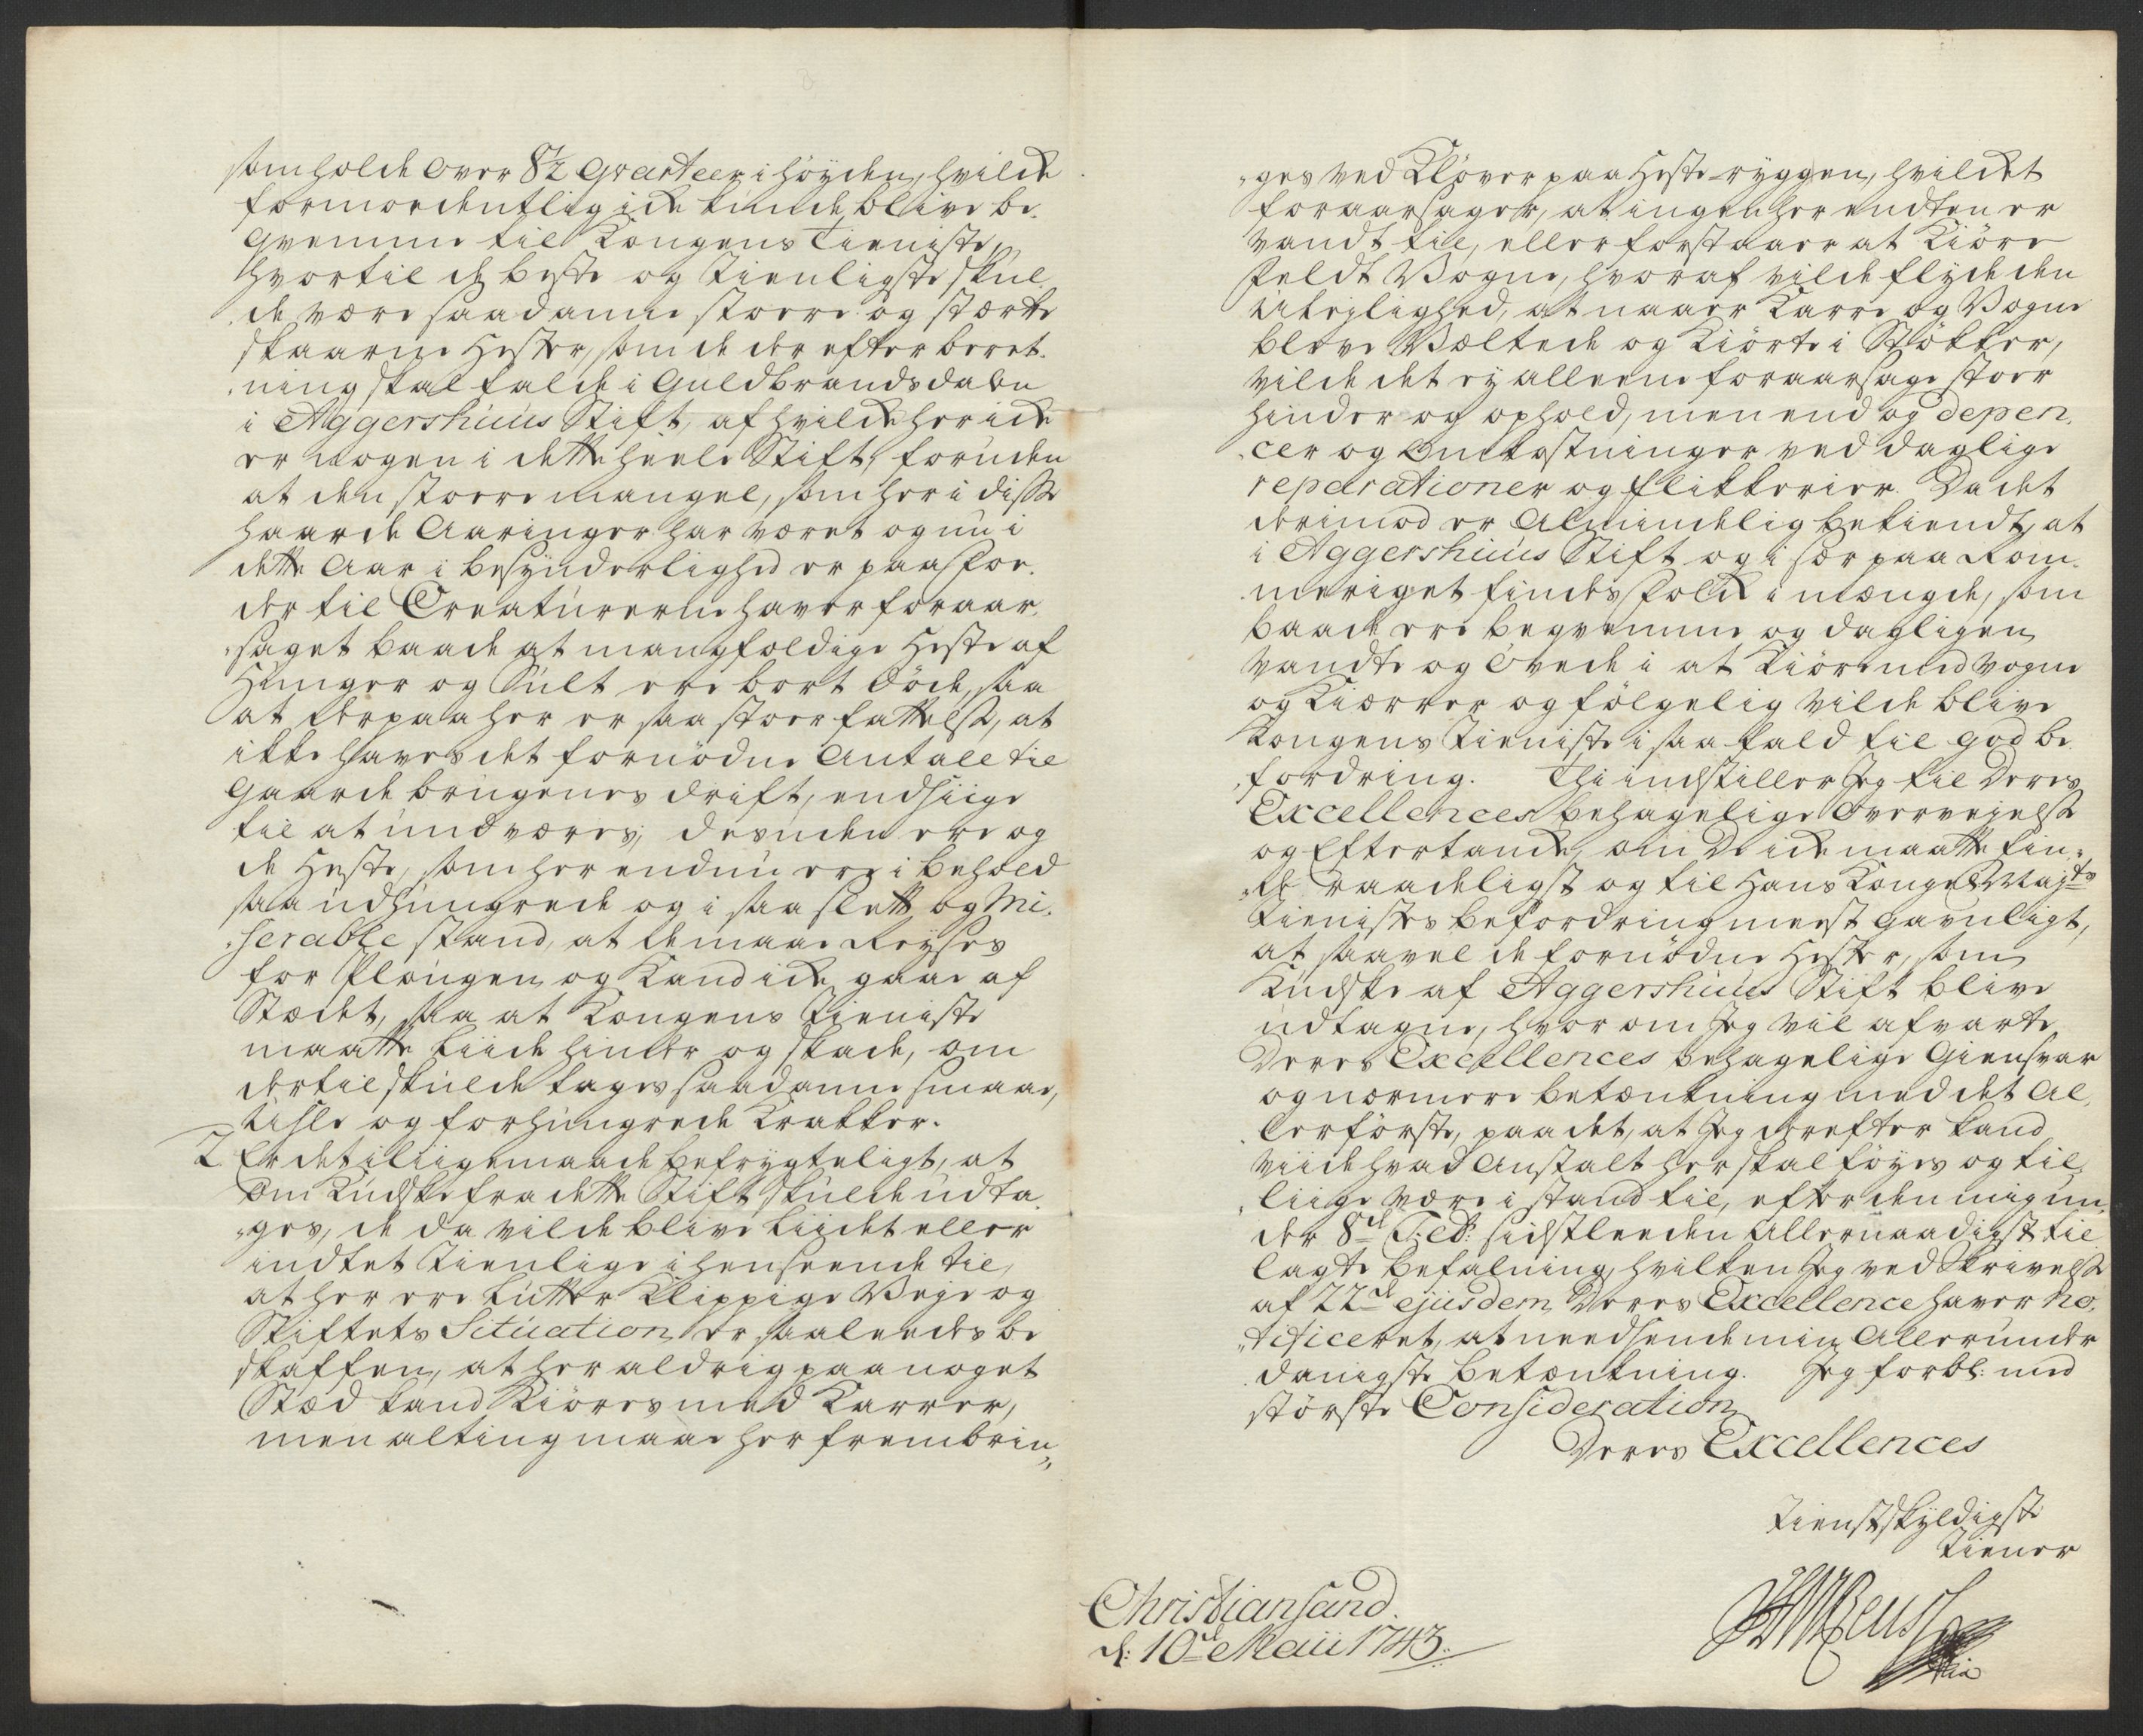 som holde over 8½ Qvarteer i høyden, hvilcke
formoedentlig icke kunde blive be-
qvemme til Kongens Tieniste,
hvortil de beste og tienligste skul-
de være saadanne stoere og stærke
skaarne Hester, som de der efter beret-
ning skal falde i Guldbrandsdalen
i Aggershuus Stift, af hvilcke her icke
er nogen i dette heele Stift, foruden
at den stoere mangel, som her i disse
haarde Aaringer har været og nu i
dette Aar i besynderlighed er paa foe-
der til Creaturerne haver foraar-
saget baade at mangfoldige Heste af
Hunger og Sult ere bort døde, saa
at derpaa her er saa stoer fattelse, at
ikke haves det fornødne Antall til
Gaarde brugenes drift, endsiige
til at undværes; desuden ere og
de Heste, som her endnu ere i behold
saa udhungrede og i saa slett og Mi-
serable stand, at de maae Reyses
for Plougen og Kand icke gaae af
Stædet, saa at Kongens Tieniste
maatte liide hinder og skade, om
dertil skulde tages saadanne smaae,
usle og forhungrede Krakker.
2 Er det iliigemaade befrygteligt, at
om Kudske fra dette Stift skulde udta-
ges, de da vilde blive liidet eller
indtet tienlige i henseende til,
at her ere lutter Klippige Veje og
Stiftets Situation er saaleedes be
skaffen, at her aldrig paa noget
Stæd kand Kiøres med Karrer,
men alting maae her frembrin-
ges ved Kløver paa Heste-ryggen, hvilcket
foraarsager, at ingen her endten er
vandt til, eller forstaaer at Kiøre
feldt Vogne, hvoraf vilde flyde den
Ulejlighed, at naar Karre og Vogne
bleve Væltede og Kiørte i Støkker,
vilde det ey alleene foraarsage stoer
hinder og ophold, men end og depen-
cer og Omkostninger ved daglige
reparationer og flikkerier. Da det
derimod er Almindelig bekiendt, at
i Aggershuus Stift og i sær paa Rom-
meriget findes folck i mængde, som
baade ere beqvemme og dagligen
vandte og øvede i at Kiøre med Vogne
og Kiærrer og følgelig vilde blive
Kongens Tieniste i saa fald til god be
fordring. Thi indstiller Jeg til Deres
Excellences behagelige Overvejelse
og Eftertancke, om De icke maatte fin-
de raadeligst og til Hans Kongel Maj:ts
Tienistes befordring meest gavnligt,
at saavel de fornødne Hester, som
Kudske af Aggershuus Stift blive
udtagne, hvor om Jeg vil afvarte
Deres Excellences behagelige Giensvar
og nærmere betænkning med det Al-
lerførste, paa det, at Jeg derefter kand
viide hvad Anstalt her skal føyes og til-
liige være i stand til, efter den mig un-
der 8de Feb: sidstleeden Allernaadigst til
lagte befalning, hvilken Jeg ved Skrivelse
af 22de ejusdem Deres Excellence haver no-
tificeret, at needsende min Allerunder
danigste betænkning. Jeg forbl: med
største Consideration
Deres Excellences
tienstskyldigste
tiener
Christiansand
d: 10de Maii 1743.